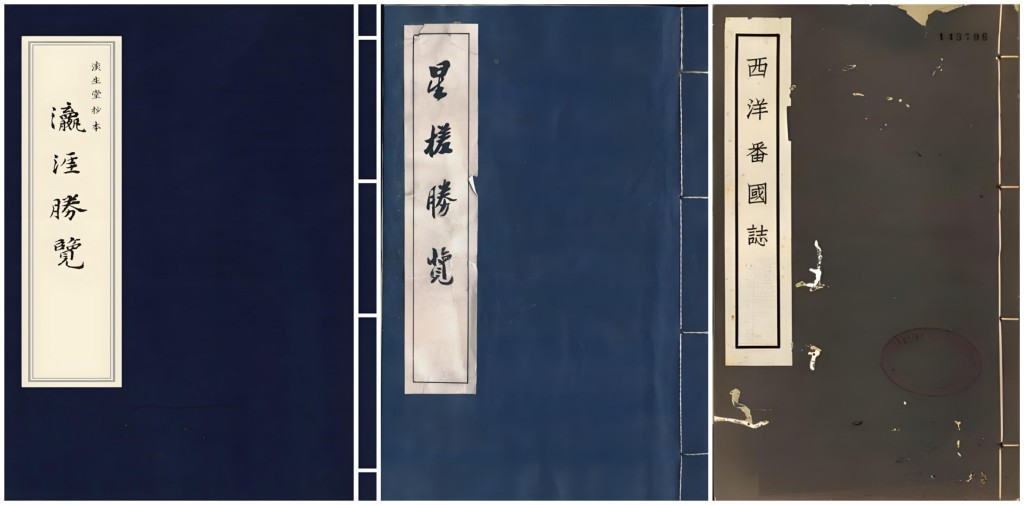 淡生堂抄本
瀛涯勝覽
星槎勝覽
西洋番國誌
143796